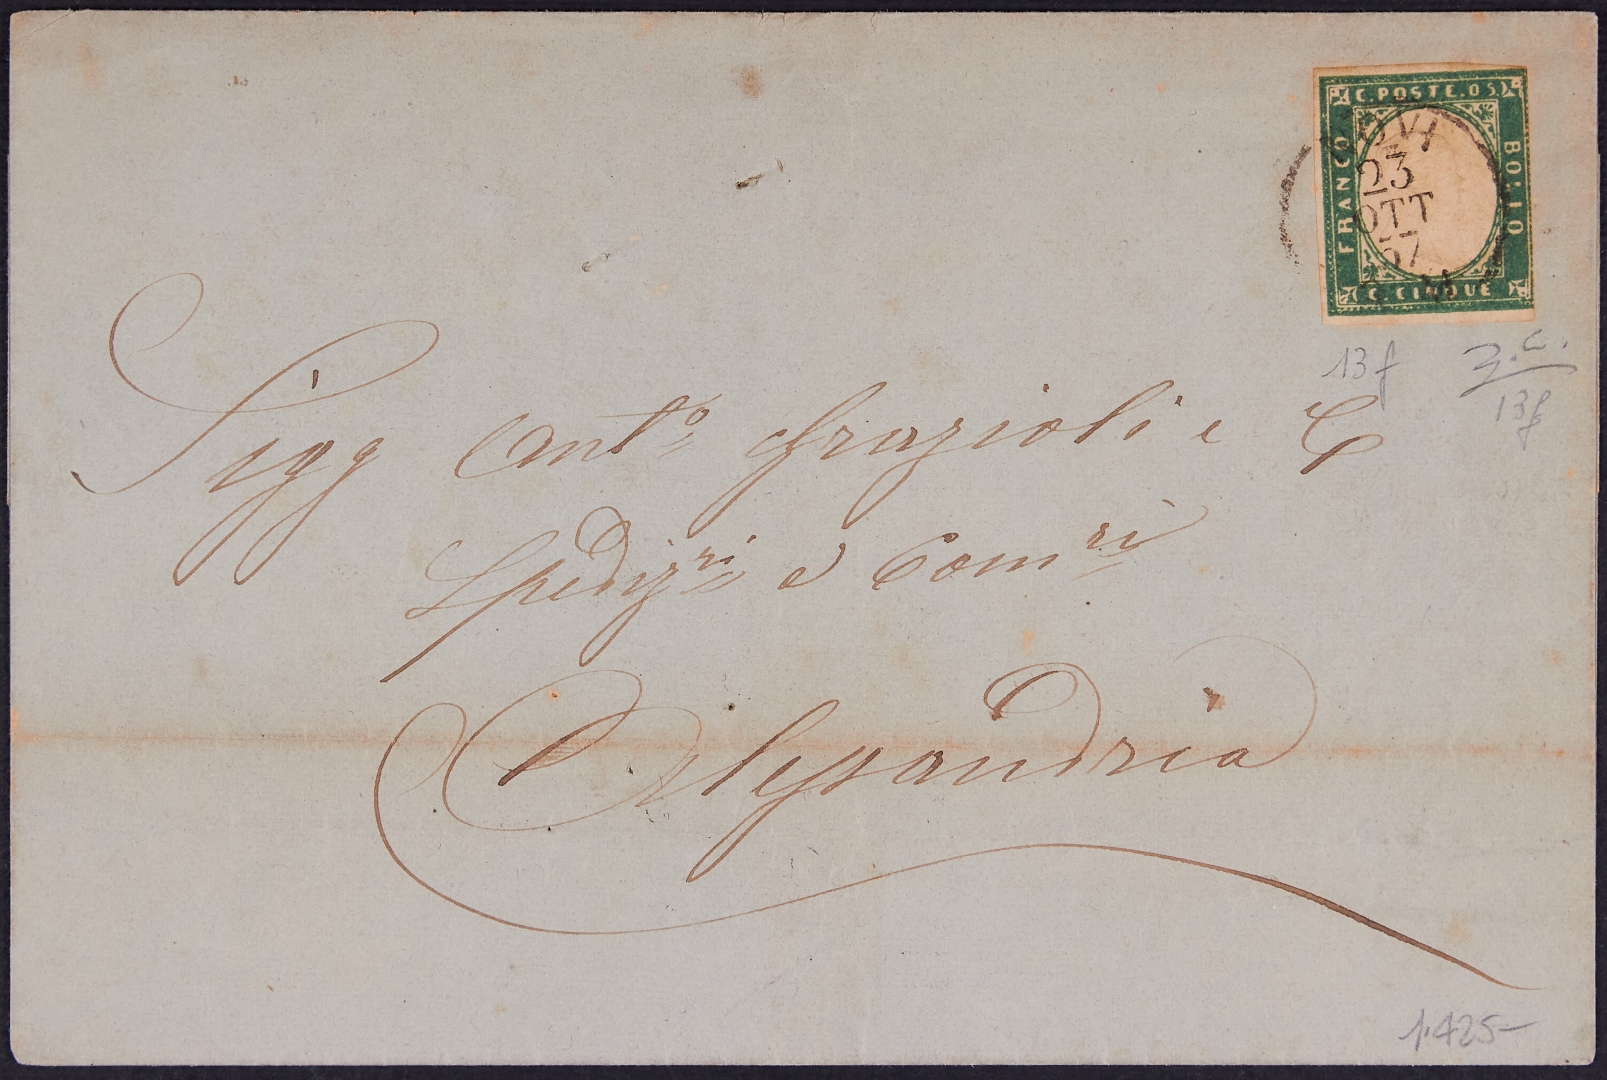 C. POSTE. 05.
FRANCO
BOLLO
C. CINQUE
NOVI
23
OTT
57
13f
13f
Sigg Ant.º Grazioli e C
Spediz.ri e Com.ri
Alessandria
1.425-